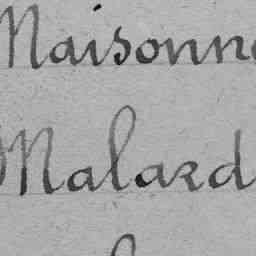 Maisonne
Malard